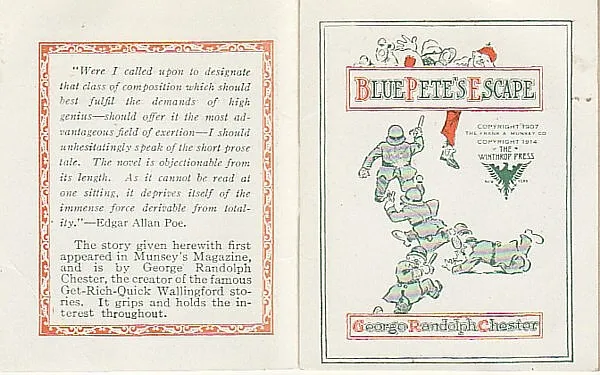 "Were I called upon to designate
that class of composition which should
best fulfil the demands of high
genius—should offer it the most ad-
vantageous field of exertion—I should
unhesitatingly speak of the short prose
tale. The novel is objectionable from
its length. As it cannot be read at
one sitting, it deprives itself of the
immense force derivable from total-
ity."—Edgar Allan Poe.
The story given herewith first
appeared in Munsey's Magazine,
and is by George Randolph
Chester, the creator of the famous
Get-Rich-Quick Wallingford sto-
ries. It grips and holds the in-
terest throughout.
BLUE PETE'S ESCAPE
COPYRIGHT 1907
THE FRANK A. MUNSEY CO
COPYRIGHT 1914
THE
WINTHROP PRESS
NEW YORK
George Randolph Chester